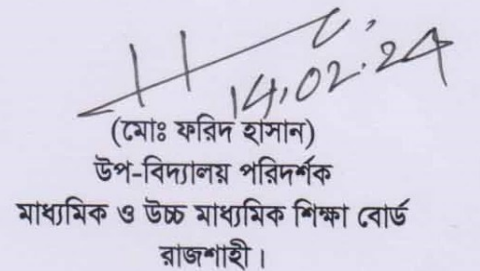 14.02.24
(মোঃ ফরিদ হাসান)
উপ-বিদ্যালয় পরিদর্শক
মাধ্যমিক ও উচ্চ মাধ্যমিক শিক্ষা বোর্ড
রাজশাহী।